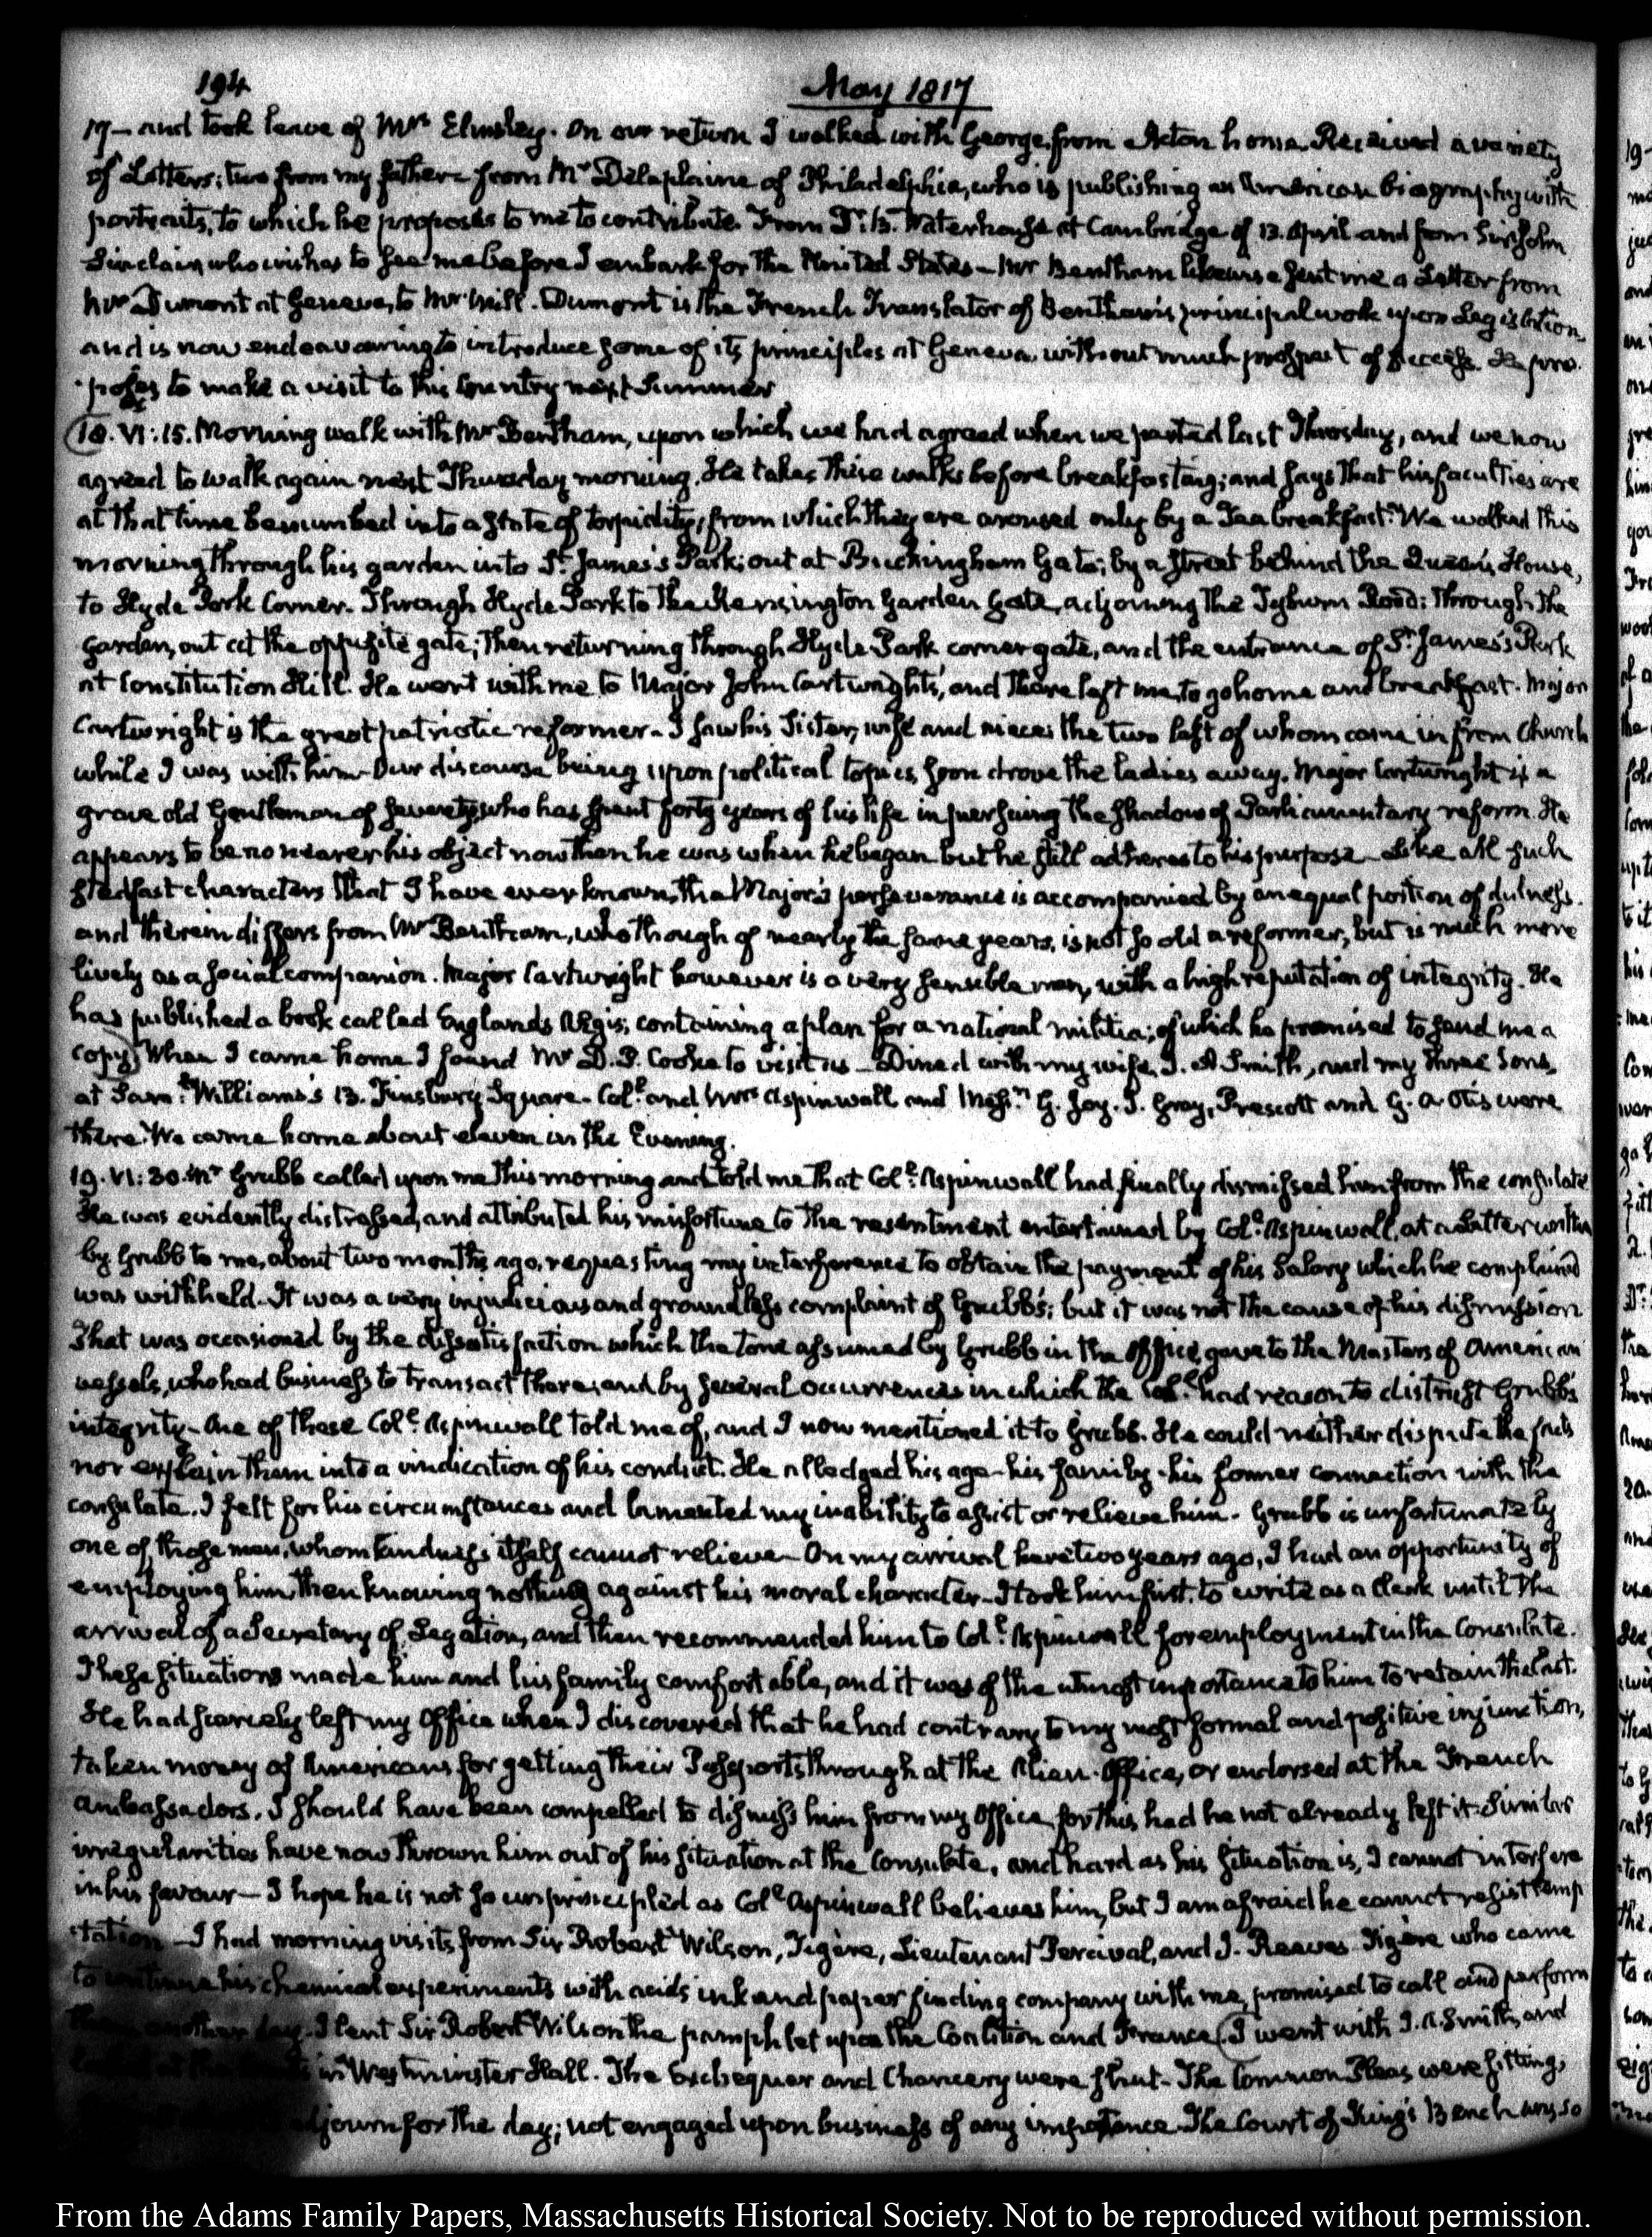 194
May 1817
17 – and took leave of Mrs. Elmsley. On our return I walked with George from Acton home. Received a variety
of Letters; two from my father – from Mr Delaplaine of Philadelphia, who is publishing an American biography with
portraits, to which he proposes to me to contribute. From Dr. B. Waterhouse at Cambridge of 13. April and from Sir John
Sinclair, who wishes to see me before I embark for the United States – Mr Bentham likewise sent me a Letter from
Mr Dumont at Geneva, to Mr Mill. Dumont is the French Translator of Bentham's principal work upon Legislation,
and is now endeavouring to introduce some of its principles at Geneva, without much prospect of success. He pro-
poses to make a visit to this Country next Summer
18. VI:15. Morning walk with Mr Bentham, upon which we had agreed when we parted last Thursday, and we now
agreed to walk again next Thursday morning. He takes these walks before breakfasting; and says that his faculties are
at that time benumbed into a state of torpidity, from which they are aroused only by a Tea breakfast. We walked this
morning through his garden into St. James's Park; out at Buckingham Gate; by a street behind the Queen's House,
to Hyde Park Corner. Through Hyde Park to the Kensington Garden Gate, adjoining the Tyburn Road: through the
Garden, out at the opposite gate; then returning through Hyde Park corner gate, and the entrance of St. James's Park
at Constitution Hill. He went with me to Major John Cartwright's, and there left me, to go home and breakfast. Major
Cartwright is the great patriotic reformer – I saw his Sister, wife and niece: the two last of whom came in from Church
while I was with him – Our discourse being upon political topics, soon drove the ladies away. Major Cartwright is a
grave old Gentleman of seventy, who has spent forty years of his life in pursuing the shadow of Parliamentary reform. He
appears to be no nearer his object now than he was when he began but he still adheres to his purpose – Like all such
stedfast characters that I have ever known, the Major's perseverance is accompanied by an equal portion of dulness.
and therein differs from Mr Bentham, who though of nearly the same years, is not so old a reformer, but is much more
lively as a social companion. Major Cartwright however is a very sensible man, with a high reputation of integrity. He
has published a book called Englands Ægis; containing a plan for a national militia; of which he promised to send me a
copy. When I came home I found Mr D. P. Cooke to visit us – Dined with my wife, J. A. Smith, and my three Sons,
at Saml. Williams's 13. Finsbury Square. Coll. and Mrs Aspinwall and Messrs G. Joy. J. Gray, Prescott and G. A Otis were
there. We came home about eleven in the Evening.
19. VI:30. Mr Grubb called upon me this morning and told me that Coll. Aspinwall had finally dismissed him from the consulate
He was evidently distressed, and attributed his misfortune to the resentment entertained by Coll. Aspinwall, at a Letter written
by Grubb to me, about two months ago, requesting my interference to obtain the payment of his Salary which he complained
was withheld. It was a very injudicious and groundless complaint of Grubb's: but it was not the cause of his dismission
That was occasioned by the dissatisfaction which the tone assumed by Grubb in the Office, gave to the Masters of American
vessels, who had business to transact there; and by several occurrences in which the Coll. had reason to distrust Grubb's
integrity – One of these Coll. Aspinwall told me of, and I now mentioned it to Grubb. He could neither dispute the facts
nor explain them into a vindication of his conduct. He alledged his age – his family – his former connection with the
consulate. I felt for his circumstances and lamented my inability to assist or relieve him. Grubb is unfortunately
one of those men, whom kindness itself cannot relieve – On my arrival here two years ago, I had an opportunity of
employing him, then knowing nothing against his moral character – I took him first, to write as a Clerk until the
arrival of a Secretary of Legation, and then recommended him to Coll. Aspinwall for employment in the Consulate.
These situations made him and his family comfortable, and it was of the utmost importance to him to retain the last.
He had scarcely left my Office when I discovered that he had contrary to my most formal and positive injunction,
taken money of Americans for getting their Passports through at the Alien-Office, or endorsed at the French
ambassadors. I should have been compelled to dismiss him from my Office for this, had he not already left it. Similar
irregularities have now thrown him out of his situation at the Consulate, and hard as his situation is, I cannot interfere
in his favour – I hope he is not so unprincipled as Coll. Aspinwall believes him, but I am afraid he cannot resist temp-
tation – I had morning visits from Sir Robert Wilson, Tigere, Lieutenant Percival, and J. Reeves. Tigere who came
to continue his chemical experiments with acids ink and paper finding company with me, promised to call and perform
them another day. I lent Sir Robert Wilson the pamphlet upon the Coalition and France. I went with J. A. Smith, and
in Westminster Hall. The Exchequer and Chancery were shut – The Common Pleas were sitting,
adjourn for the day; not engaged upon business of any importance. The Court of King's Bench was so
From the Adams Family Papers, Massachusetts Historical Society. Not to be reproduced without permission.